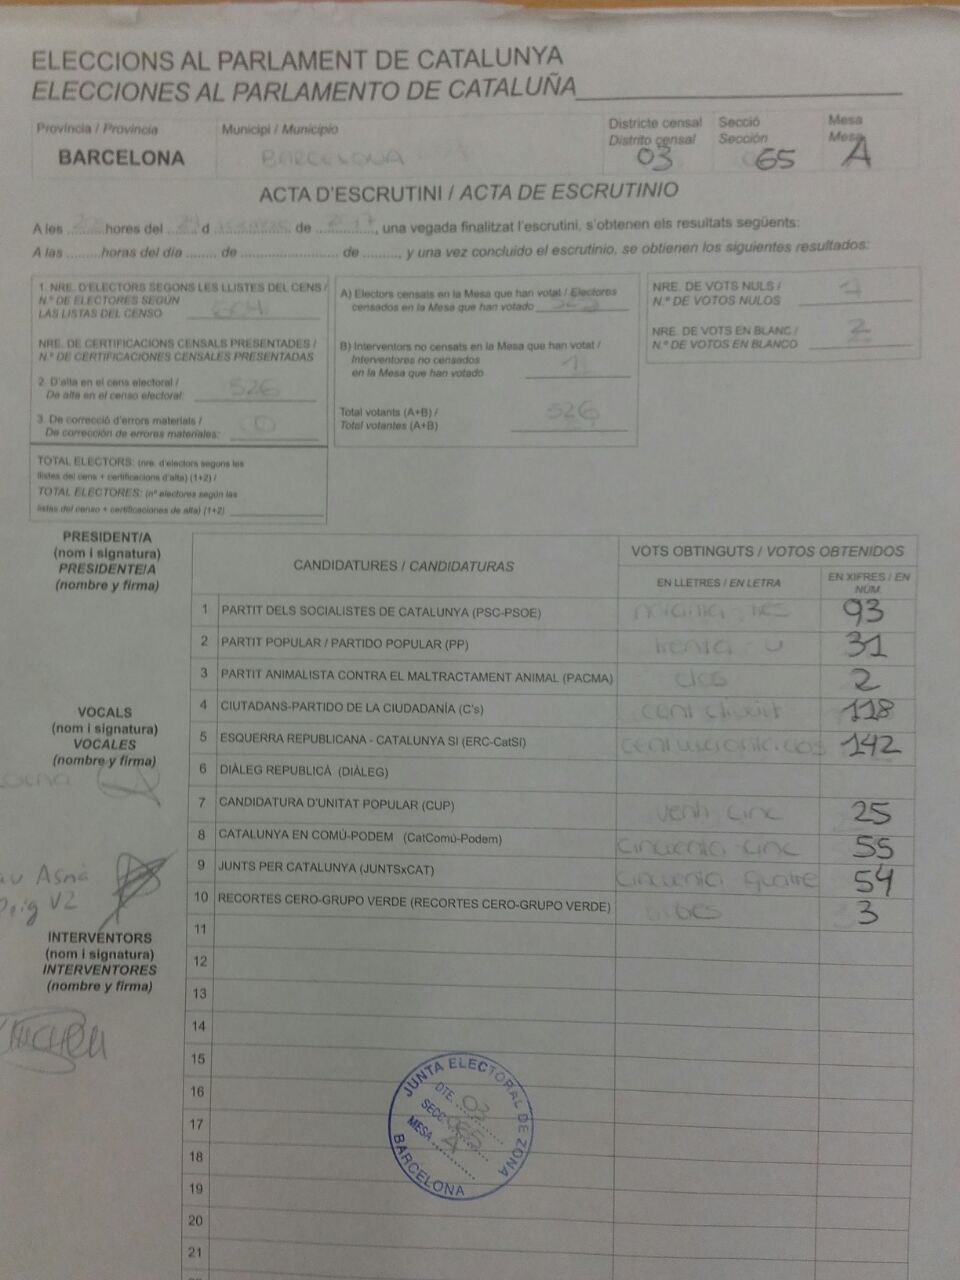 ELECCIONS AL PARLAMENT DE CATALUNYA
ELECCIONES AL PARLAMENTO DE CATALUÑA
Província / Provincia
BARCELONA
Municipi / Municipio
BARCELONA
Districte censal
Distrito censal
03
Secció
Sección
65
Mesa
Mesa
A
ACTA D'ESCRUTINI / ACTA DE ESCRUTINIO
A les ........ hores del ........ d ........ de 2017, una vegada finalitzat l'escrutini, s'obtenen els resultats següents:
A las ......... horas del día ........ de ........................... de ........., y una vez concluido el escrutinio, se obtienen los siguientes resultados:
1. NRE. D'ELECTORS SEGONS LES LLISTES DEL CENS /
N.º DE ELECTORES SEGÚN
LAS LISTAS DEL CENSO 604
NRE. DE CERTIFICACIONS CENSALS PRESENTADES /
N.º DE CERTIFICACIONES CENSALES PRESENTADAS
2. D'alta en el cens electoral /
De alta en el censo electoral: 526
3. De correcció d'errors materials /
De corrección de errores materiales: 0
TOTAL ELECTORS: (nre. d'electors segons les
llistes del cens + certificacions d'alta) (1+2) /
TOTAL ELECTORES: (nº electores según las
listas del censo + certificaciones de alta) (1+2)
A) Electors censats en la Mesa que han votat / Electores
censados en la Mesa que han votado 525
B) Interventors no censats en la Mesa que han votat /
Interventores no censados
en la Mesa que han votado 1
Total votants (A+B) /
Total votantes (A+B) 526
NRE. DE VOTS NULS /
N.º DE VOTOS NULOS 1
NRE. DE VOTS EN BLANC /
N.º DE VOTOS EN BLANCO 2
PRESIDENT/A
(nom i signatura)
PRESIDENTE/A
(nombre y firma)
VOCALS
(nom i signatura)
VOCALES
(nombre y firma)
Asnà
Puig V2
INTERVENTORS
(nom i signatura)
INTERVENTORES
(nombre y firma)
CANDIDATURES / CANDIDATURAS
VOTS OBTINGUTS / VOTOS OBTENIDOS
EN LLETRES / EN LETRA
EN XIFRES / EN NÚM.
1 PARTIT DELS SOCIALISTES DE CATALUNYA (PSC-PSOE) noranta tres 93
2 PARTIT POPULAR / PARTIDO POPULAR (PP) trenta u 31
3 PARTIT ANIMALISTA CONTRA EL MALTRACTAMENT ANIMAL (PACMA) dos 2
4 CIUTADANS-PARTIDO DE LA CIUDADANÍA (C's) cent divuit 118
5 ESQUERRA REPUBLICANA - CATALUNYA SÍ (ERC-CatSí) cent quaranta dos 142
6 DIÀLEG REPUBLICÀ (DIÀLEG)
7 CANDIDATURA D'UNITAT POPULAR (CUP) vent cinc 25
8 CATALUNYA EN COMÚ-PODEM (CatComú-Podem) cinquanta cinc 55
9 JUNTS PER CATALUNYA (JUNTSxCAT) cinquanta quatre 54
10 RECORTES CERO-GRUPO VERDE (RECORTES CERO-GRUPO VERDE) 3
11
12
13
14
15
16
17
18
19
20
21
JUNTA ELECTORAL DE ZONA
DTE. 03
SECC. 065
MESA A
BARCELONA